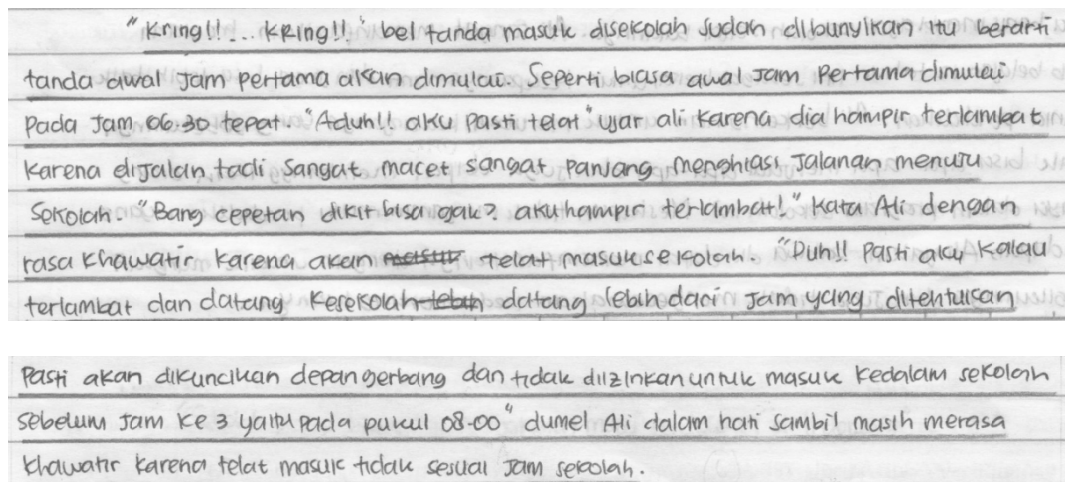 "Kring!!... kRing!!" bel tanda masuk disekolah sudah dibunyikan itu berarti
tanda awal jam pertama akan dimulai. Seperti biasa awal jam pertama dimulai
pada jam 06.30 tepat. "Aduh!! aku pasti telat" ujar ali karena dia hampir terlambat
karena dijalan tadi sangat macet sangat panjang menghiasi jalanan menuju
sekolah. "Bang cepetan dikit bisa gak? aku hampir terlambat!" kata Ali dengan
rasa khawatir karena akan telat masuk sekolah. "Duh!! Pasti aku kalau
terlambat dan datang kesekolah datang lebih dari jam yang ditentukan
Pasti akan dikuncikan depan gerbang dan tidak diizinkan untuk masuk kedalam sekolah
sebelum jam ke 3 yaitu pada pukul 08.00" dumel Ali dalam hati sambil masih merasa
khawatir karena telat masuk tidak sesuai jam sekolah.